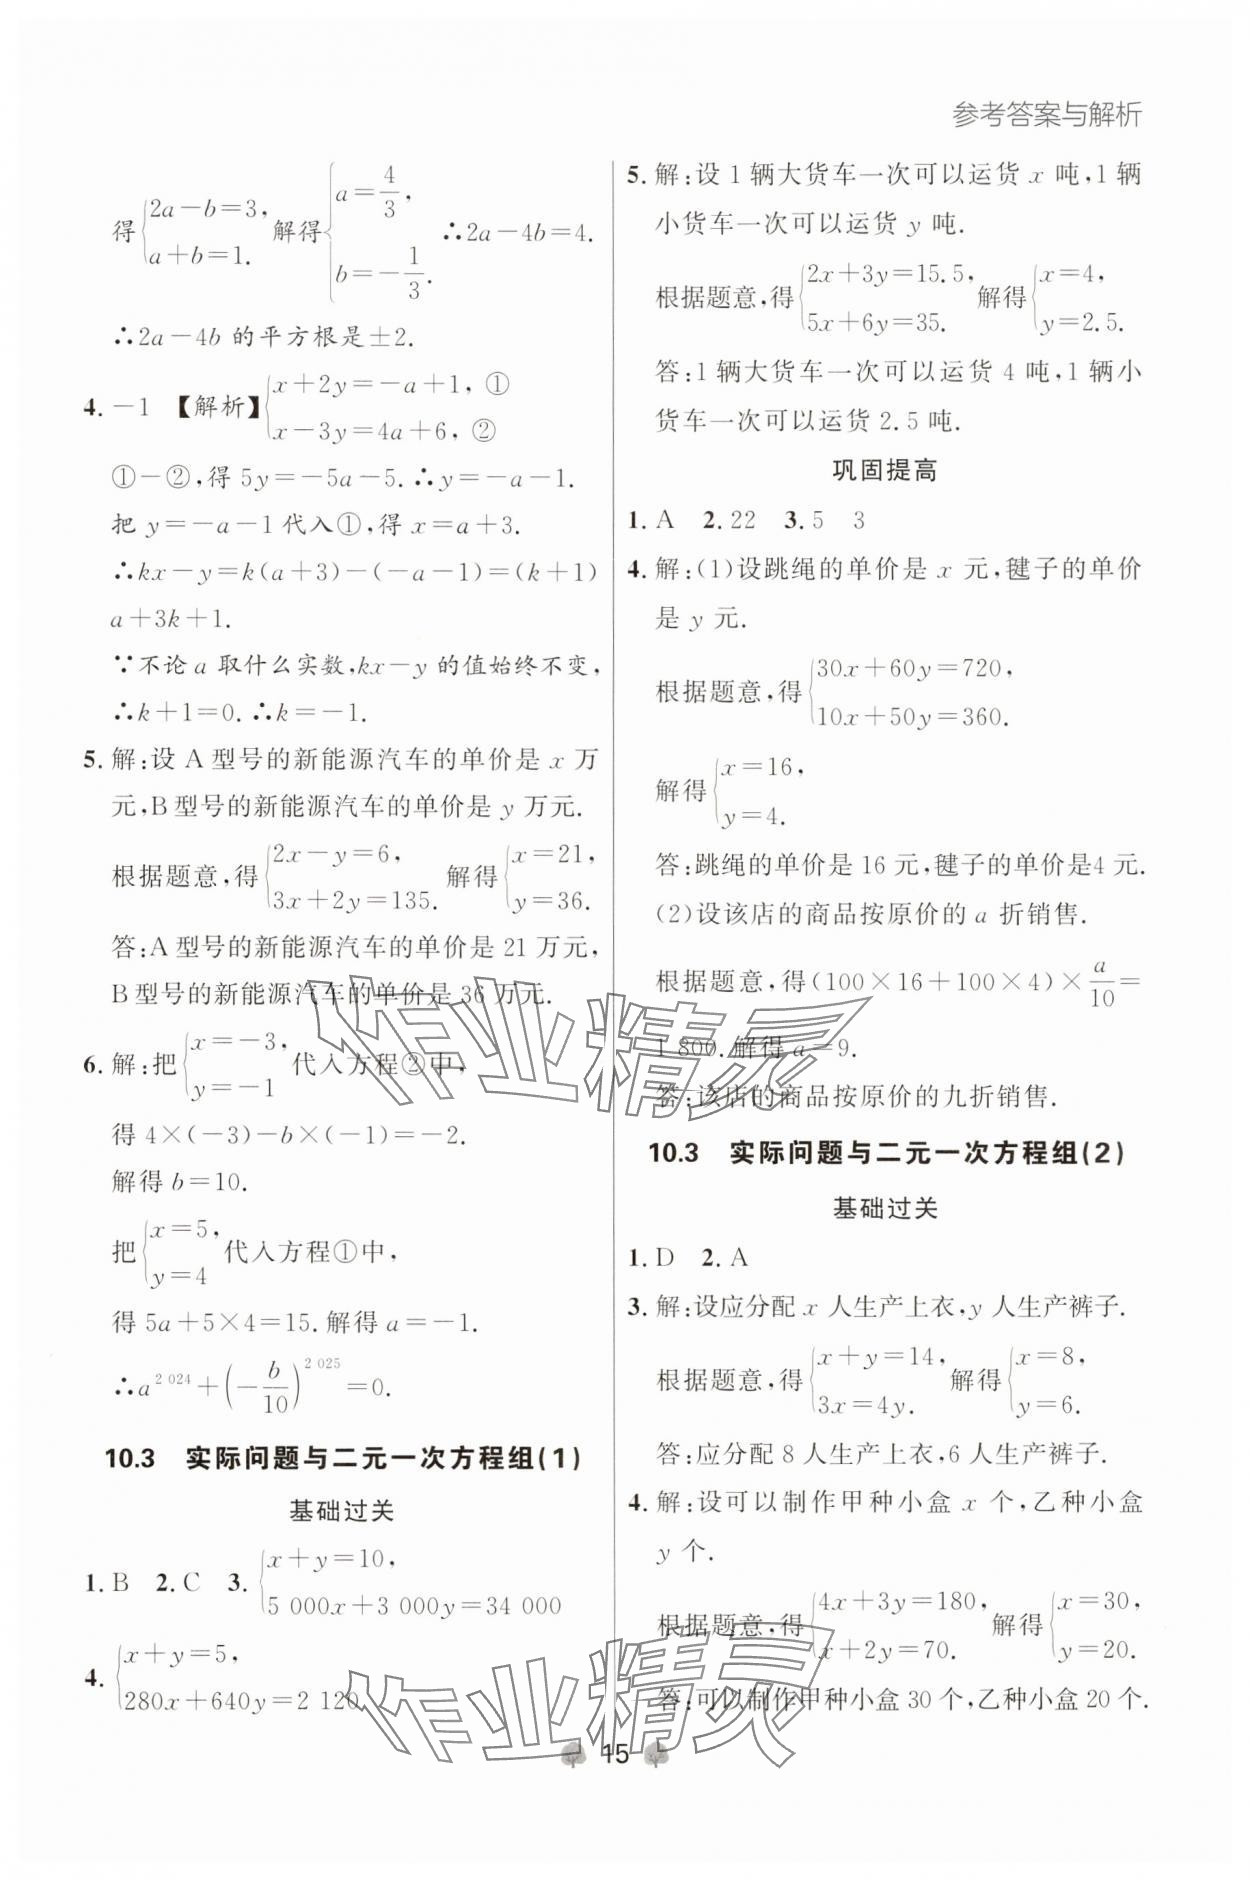 参考答案与解析
得{2a-b=3, a+b=1. 解得{a=4/3, b=-1/3. ∴2a-4b=4.
∴2a-4b 的平方根是±2.
4. -1 【解析】{x+2y=-a+1, ① x-3y=4a+6, ②
①-②,得 5y=-5a-5.∴y=-a-1.
把 y=-a-1代入①,得 x=a+3.
∴kx-y=k(a+3)-(-a-1)=(k+1)
a+3k+1.
∵不论 a 取什么实数,kx-y 的值始终不变,
∴k+1=0.∴k=-1.
5. 解:设 A 型号的新能源汽车的单价是 x 万
元,B型号的新能源汽车的单价是 y 万元.
根据题意,得{2x-y=6, 3x+2y=135. 解得{x=21, y=36.
答:A 型号的新能源汽车的单价是 21 万元,
B 型号的新能源汽车的单价是 36 万元.
6. 解:把{x=-3, y=-1 代入方程②中,
得 4×(-3)-b×(-1)=-2.
解得 b=10.
把{x=5, y=4 代入方程①中,
得 5a+5×4=15.解得 a=-1.
∴a^{2 024}+(-b/10)^{2 025}=0.
10.3 实际问题与二元一次方程组(1)
基础过关
1. B 2. C 3. {x+y=10, 5 000x+3 000y=34 000
4. {x+y=5, 280x+640y=2 120
5. 解:设 1 辆大货车一次可以运货 x 吨,1 辆
小货车一次可以运货 y 吨.
根据题意,得{2x+3y=15.5, 5x+6y=35. 解得{x=4, y=2.5.
答:1 辆大货车一次可以运货 4 吨,1 辆小
货车一次可以运货 2.5 吨.
巩固提高
1. A 2. 22 3. 5 3
4. 解:(1)设跳绳的单价是 x 元,毽子的单价
是 y 元.
根据题意,得{30x+60y=720, 10x+50y=360.
解得{x=16, y=4.
答:跳绳的单价是 16 元,毽子的单价是4 元.
(2)设该店的商品按原价的 a 折销售.
根据题意,得(100×16+100×4)×a/10=
1 800.解得 a=9.
答:该店的商品按原价的九折销售.
10.3 实际问题与二元一次方程组(2)
基础过关
1. D 2. A
3. 解:设应分配 x 人生产上衣,y 人生产裤子.
根据题意,得{x+y=14, 3x=4y. 解得{x=8, y=6.
答:应分配 8 人生产上衣,6 人生产裤子.
4. 解:设可以制作甲种小盒 x 个,乙种小盒
y 个.
根据题意,得{4x+3y=180, x+2y=70. 解得{x=30, y=20.
答:可以制作甲种小盒 30 个,乙种小盒 20 个.
作业精灵
作业精灵
15